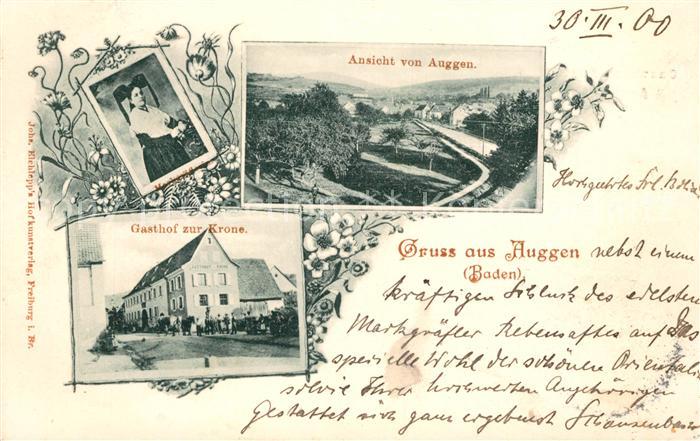 30. III. 00
Ansicht von Auggen.
Gasthof zur Krone.
Johs. Elchlepp's Hofkunstverlag, Freiburg i. Br.
Gruss aus Auggen
(Baden)
nebst einem
kräftigen Schluck des edelsten
Markgräfler Rebensaftes auf das
spezielle Wohl der schönen
sowie Ihrer hochwerten Angehörigen
gestattet sich ganz ergebenst